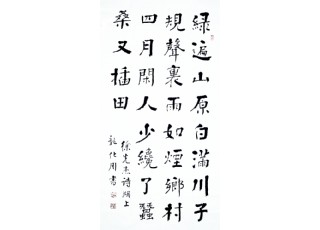 綠遍山原白滿川子
規聲裏雨如煙鄉村
四月閒人少纔了蠶
桑又插田
徐先生詩湖上